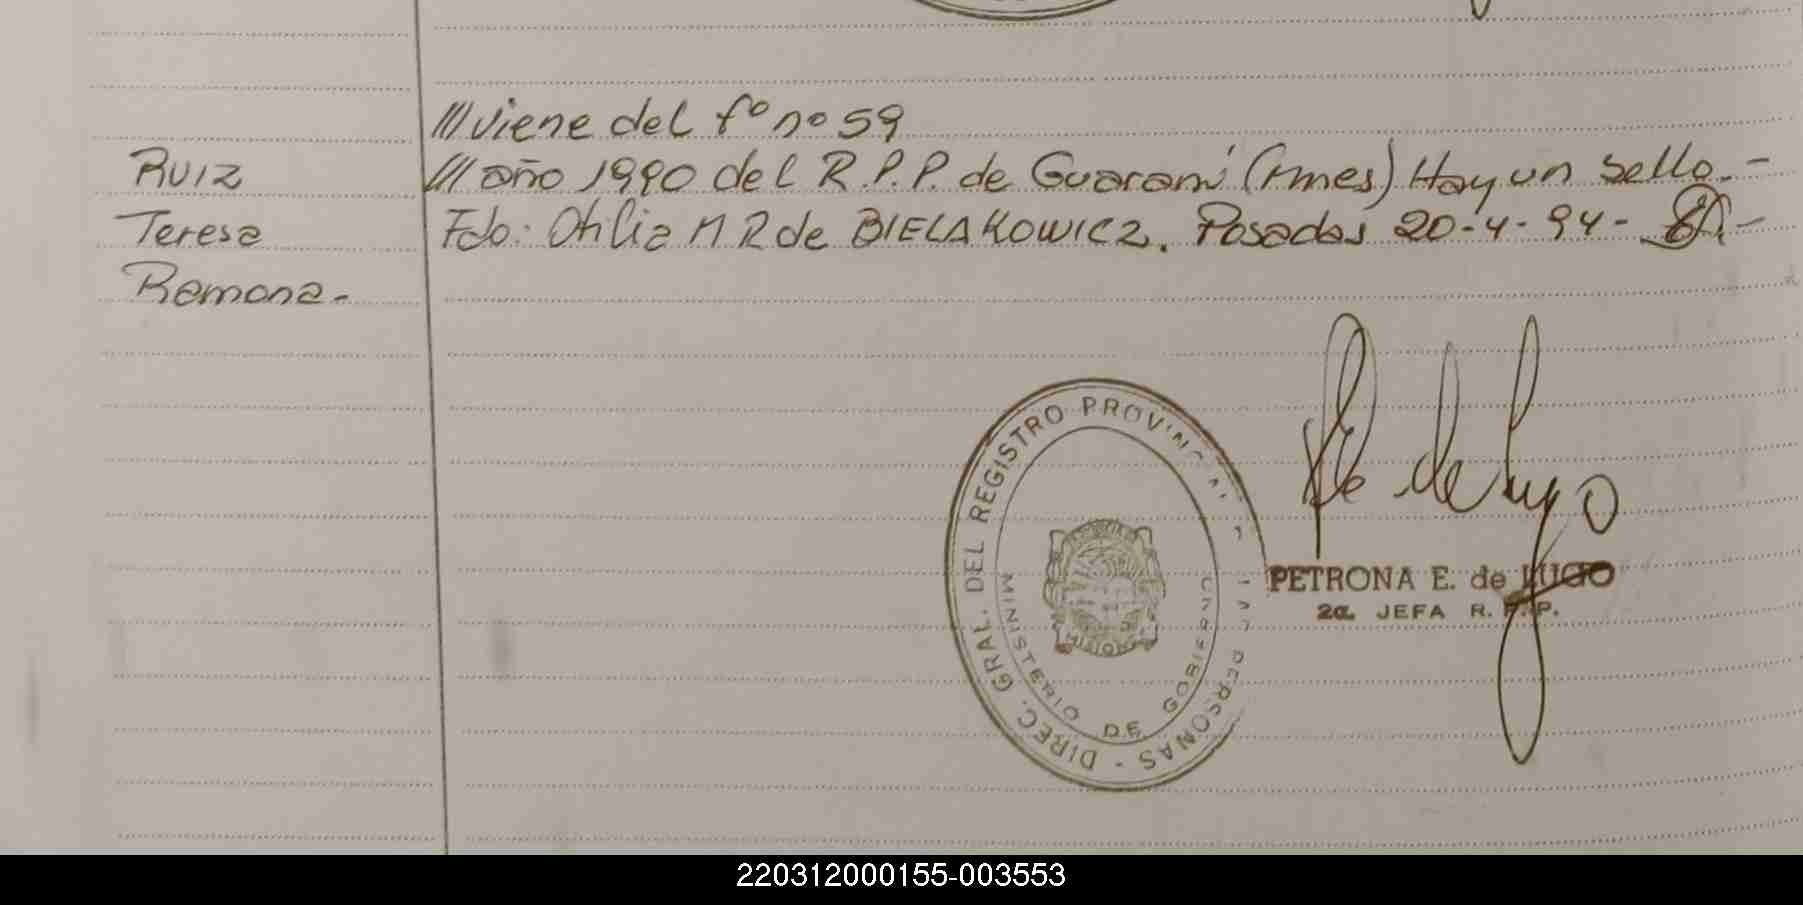 ///viene del fº nº 59
RUIZ
///año 1990 del R.P.P. de Guaraní (Mnes) Hay un sello.-
Teresa
Fdo: Otilia M R de BIELAKOWICZ. Posadas 20-4-94-
Ramona.-
DIREC. GRAL. DEL REGISTRO PROVINCIAL PERSONAS -
MINISTERIO DE GOBIERNO
MISIONES
PETRONA E. de LUGO
2a. JEFA R.P.P.
220312000155-003553